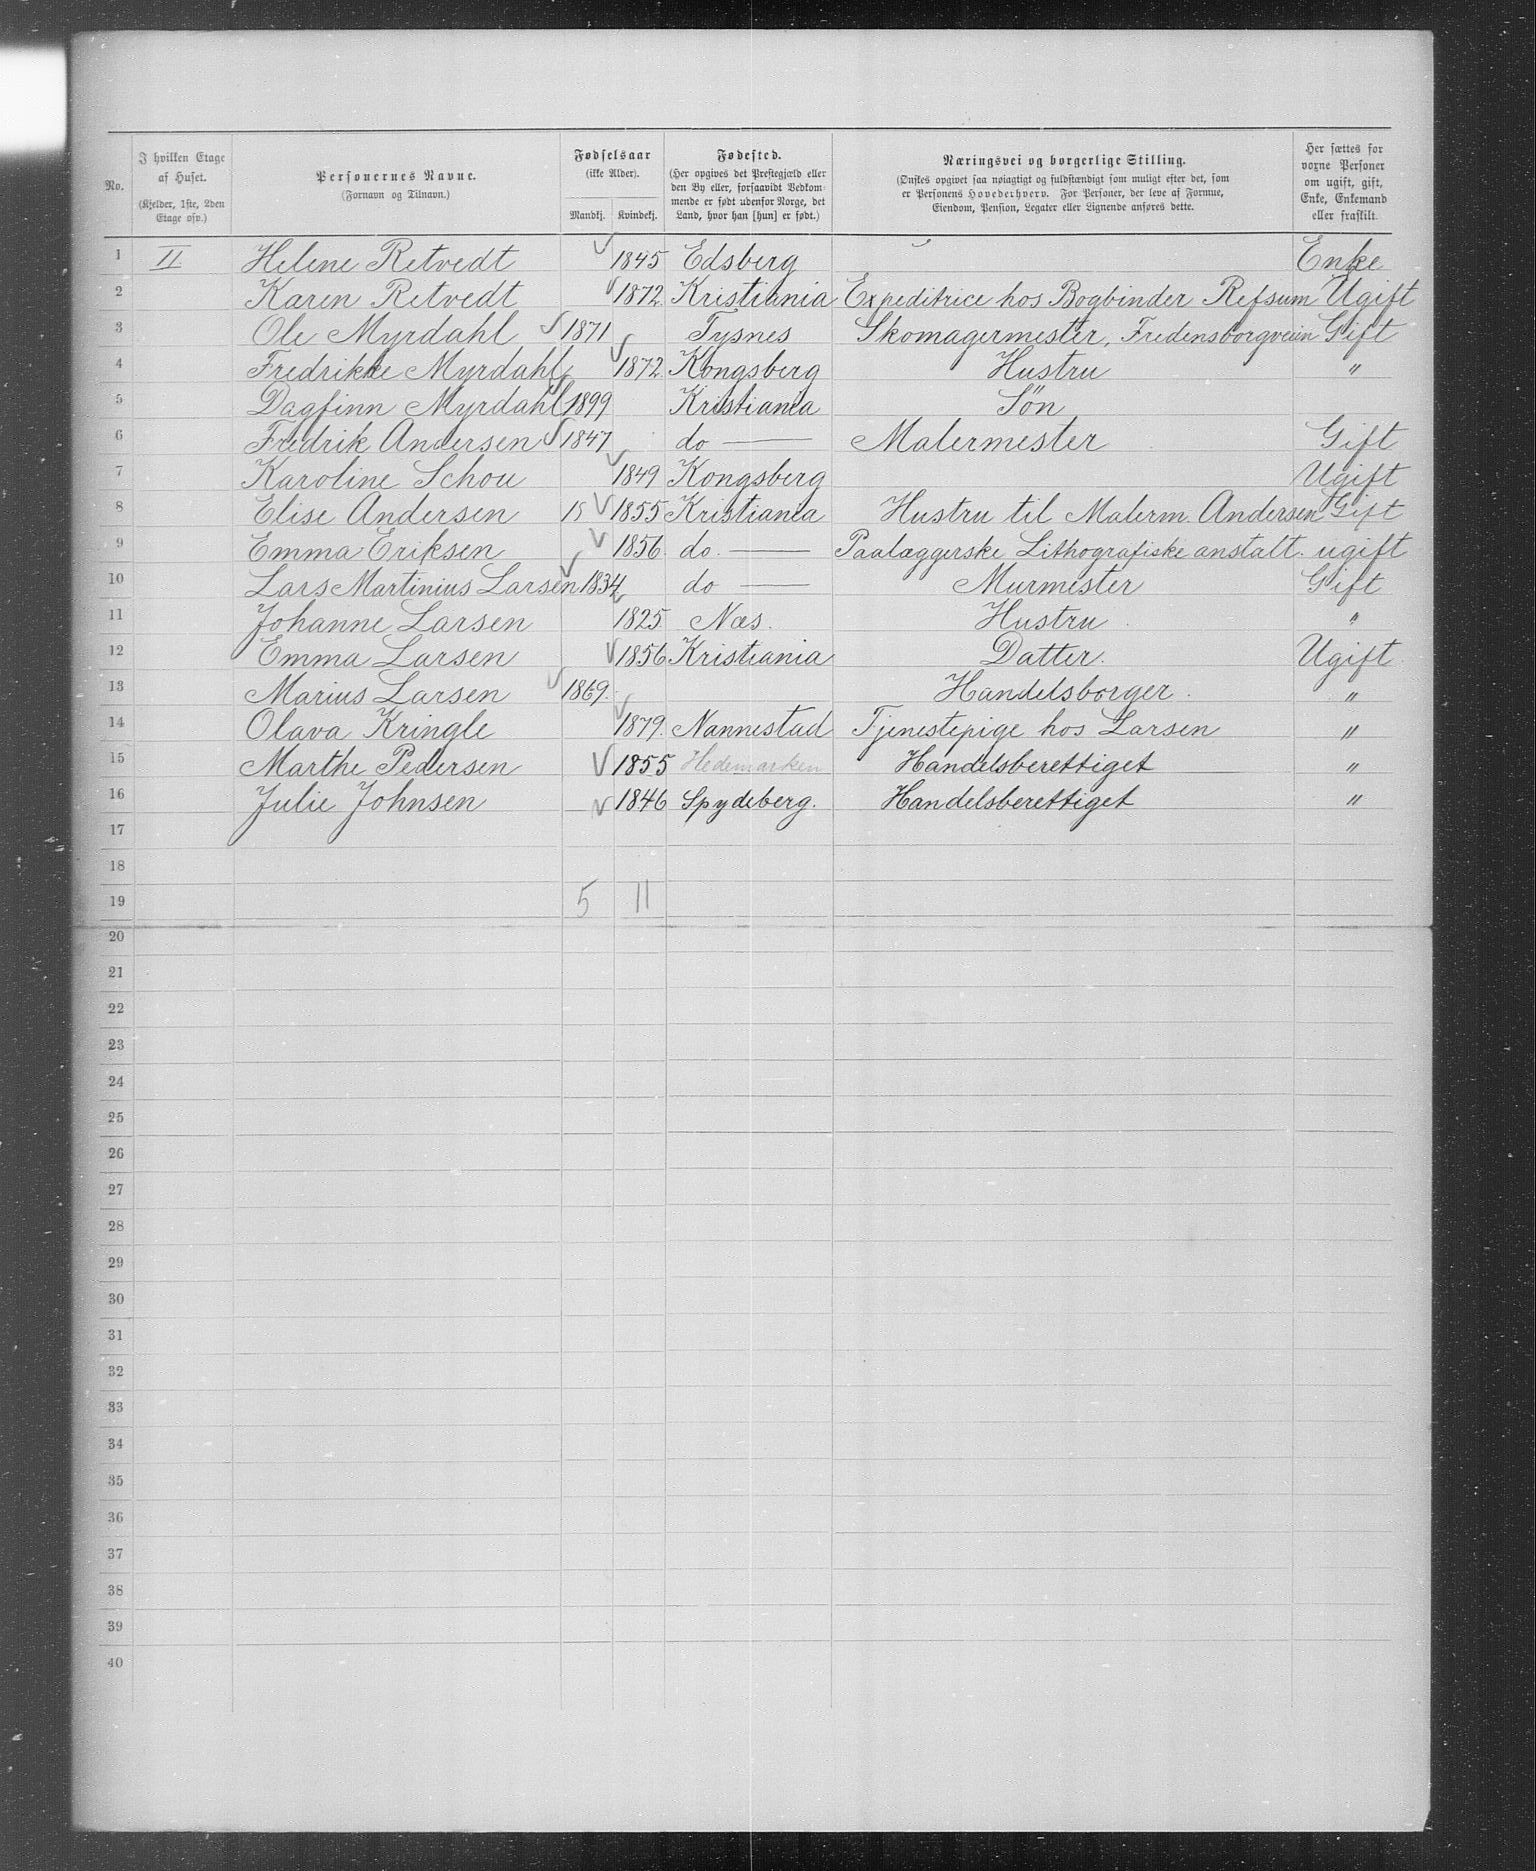 No.	I hvilken Etage af Huset. (Kjelder, 1ste, 2den Etage osv.)	Personernes Navne. (Fornavn og Tilnavn.)	Fødselsaar (ikke Alder). Mandkj.	Kvindekj.	Fødested. (Her opgives det Prestegjæld eller den By eller, forsaavidt Vedkommende er født udenfor Norge, det Land, hvor han [hun] er født.)	Næringsvei og borgerlige Stilling. (Ønskes opgivet saa nøiagtigt og fuldstændigt som muligt efter det, som er Personens Hovederhverv. For Personer, der leve af Formue, Eiendom, Pension, Legater eller Lignende anføres dette.)	Her sættes for voxne Personer om ugift, gift, Enke, Enkemand eller fraskilt.
1 II Helene Retvedt 1845 Edsberg Enke
2 Karen Retvedt 1872. Kristiania Expeditrice hos Bogbinder Refsum Ugift
3 Ole Myrdahl 1871 Tysnes Skomagermester, Fredensborgveien Gift
4 Fredrikke Myrdahl 1872. Kongsberg Hustru "
5 Dagfinn Myrdahl 1899 Kristiania Søn
6 Fredrik Andersen 1847 do Malermester Gift
7 Karoline Schou 1849 Kongsberg Ugift
8 Elise Andersen 18 1855 Kristiania Hustru til Malerm. Andersen Gift
9 Emma Eriksen 1856. do. Paalæggerske Lithografiske anstalt. ugift
10 Lars Martinius Larsen 1834 do Murmester Gift
11 Johanne Larsen 1825 Næs. Hustru "
12 Emma Larsen 1856 Kristiania Datter. Ugift.
13 Marius Larsen 1869. Handelsborger. "
14 Olava Kringle 1879. Nannestad Tjenestepige hos Larsen "
15 Marthe Pedersen 1855 Hedemarken Handelsberettiget "
16 Julie Johnsen 1846 Spydeberg. Handelsberettiget "
17
18
19 5 11
20
21
22
23
24
25
26
27
28
29
30
31
32
33
34
35
36
37
38
39
40